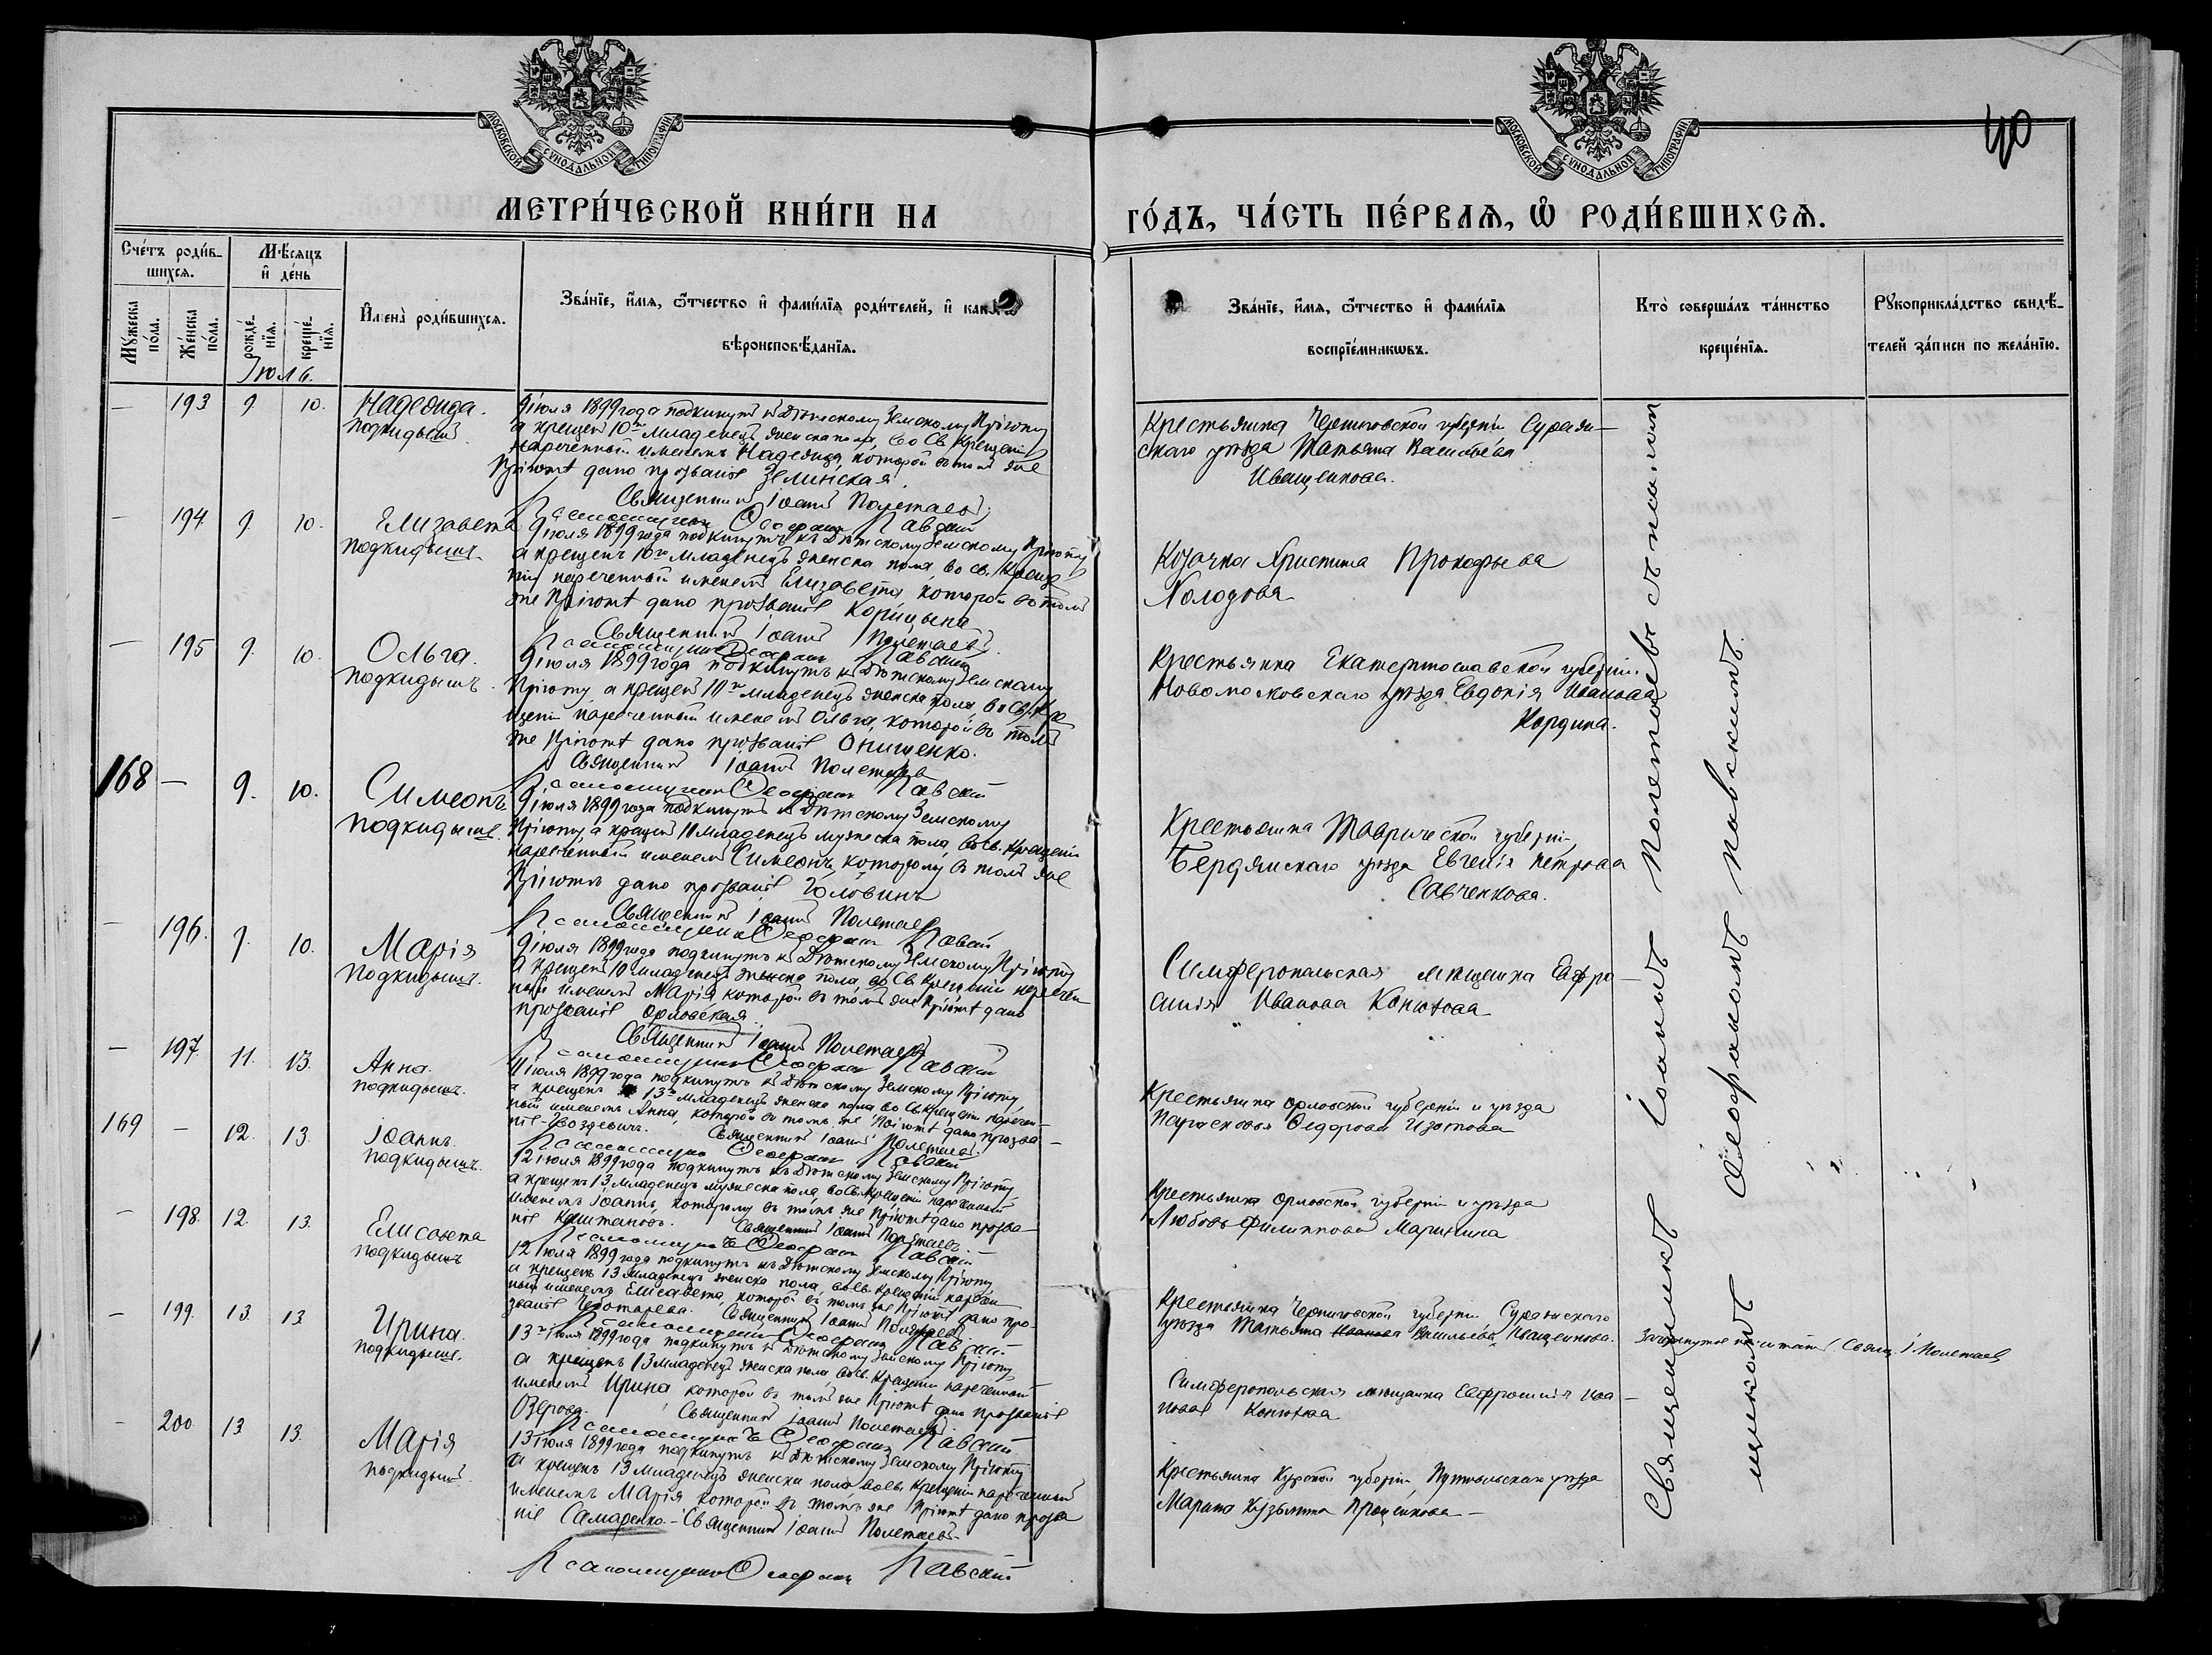 МОСКОВСКОЙ СѴНОДАЛЬНОЙ ТИПОГРАФІИ
МОСКОВСКОЙ СѴНОДАЛЬНОЙ ТИПОГРАФІИ
40
МЕТРИ́ЧЕСКОЙ КНИ́ГИ НА
ГО́ДЪ, ЧА́СТЬ ПЕ́РВАѦ, Ѡ҆ РОДИ́ВШИХСѦ.
Сче́тъ роди́в-
шихсѧ.
Мѣ́сѧцъ
и҆ де́нь
Мꙋ́жеска по́ла.
Же́нска по́ла.
рожде́-
нїѧ.
креще́-
нїѧ.
И҆мена̀ роди́вшихсѧ.
Зва́нїе, и҆́мѧ, ѻ҆́тчество и҆ фами́лїѧ роди́телей, и҆
вѣроисповѣ́данїѧ.
Зва́нїе, и҆́мѧ, ѻ҆́тчество и҆ фами́лїѧ
воспрїе́мникѡвъ.
Кто̀ соверша́лъ та́инство
креще́нїѧ.
Рꙋкоприкла́дство свидѣ́-
телей за́писи по жела́нїю.
Іюль.
— 193 9. 10. Надежда.
подкидышъ.
9 іюля 1899 года подкинутъ къ Дѣтскому Земскому Пріюту
а крещенъ 10го младенецъ женска пола, во Св Крещеніи
нареченный именемъ Надежда, которой въ томъ же
Пріютѣ дано прозваніе Зелинская.
Священникъ Іоаннъ Полетаевъ
Псаломщикъ Ѳеофанъ Павскій
Крестьянка Черниговской губерніи Сураж-
скаго уѣзда Татьяна Васильева
Иващенкова.
— 194 9. 10. Елизавета
подкидышъ
9 іюля 1899 года подкинутъ къ Дѣтскому Земскому Пріюту
а крещенъ 10го младенецъ женска пола, во св. Креще-
ніи нареченный именемъ Елизавета, которой въ томъ
же Пріютѣ дано прозваніе Корицына
Священникъ Іоаннъ Полетаевъ.
Псаломщикъ Ѳеофанъ Павскій
Козачка Христина Прокофьева
Холодова
— 195 9. 10. Ольга.
подкидышъ.
9 іюля 1899 года подкинутъ къ Дѣтскому Земскому
Пріюту, а крещенъ 10го младенецъ женска пола, во Св. Кре
щеніи нареченный именемъ Ольга, которой въ томъ
же Пріютѣ дано прозваніе Онищенко.
Священникъ Іоаннъ Полетаевъ
Псаломщикъ Ѳеофанъ Павскій
Крестьянка Екатеринославской губерніи
Новомосковскаго уѣзда Евдокія Иванова
Кордина.
168 — 9. 10. Симеонъ
подкидышъ.
9 іюля 1899 года подкинутъ къ Дѣтскому Земскому
Пріюту, а крещенъ 10 младенецъ мужеска пола, во св. Крещеніи
нареченный именемъ Симеонъ, которому въ томъ же
Пріютѣ дано прозваніе Головинъ
Священникъ Іоаннъ Полетаевъ
Псаломщикъ Ѳеофанъ Павскій
Крестьянка Таврической губерніи
Бердянскаго уѣзда Евгенія Петрова
Савченкова.
— 196. 9. 10. Марія
подкидышъ.
9 іюля 1899 года подкинутъ къ Дѣтскому Земскому Пріюту
а крещенъ 10 младенецъ женска пола, во Св Крещеніи наречен-
ный именемъ Марія которой въ томъ же Пріютѣ дано
прозваніе Орловская
Священникъ Іоаннъ Полетаевъ
Псаломщикъ Ѳеофанъ Павскій
Симферопольская мѣщанка Евфро-
синія Иванова Конюхова
— 197. 11. 13. Анна.
подкидышъ.
11 іюля 1899 года подкинутъ къ Дѣтскому Земскому Пріюту
а крещенъ 13го младенецъ женска пола во Св Крещеніи наречен-
ный именемъ Анна, которой въ томъ же Пріютѣ дано прозва-
ніе Гвоздевичъ. Священникъ Іоаннъ Полетаевъ.
Псаломщикъ Ѳеофанъ Павскій
Крестьянка Орловской губерніи и уѣзда
Параскева Ѳедорова Изотова
169 — 12. 13. Іоаннъ.
подкидышъ.
12 іюля 1899 года подкинутъ къ Дѣтскому Земскому Пріюту
а крещенъ 13 младенецъ мужеска пола, во Св. Крещеніи нареченный
именемъ Іоаннъ, которому въ томъ же Пріютѣ дано прозва-
ніе Каштановъ. Священникъ Іоаннъ Полетаевъ
Псаломщикъ Ѳеофанъ Павскій
Крестьянка Орловской губерніи и уѣзда
Любовь Филиппова Маринина
— 198. 12. 13. Елисавета
подкидышъ
12 іюля 1899 года подкинутъ къ Дѣтскому Земскому Пріюту
а крещенъ 13 младенецъ женска пола, во св. Крещеніи наречен
ный именемъ Елисавета, которой въ томъ же Пріютѣ дано про-
званіе Чеботарева. Священникъ Іоаннъ Полетаевъ
Псаломщикъ Ѳеофанъ Павскій
Крестьянка Черниговской губерніи Суражскаго
уѣзда Татьяна Иванова Васильева Иващенкова. Зачеркнутое не читать. Свящ. І Полетаевъ
— 199. 13. 13 Ирина.
подкидышъ.
13го іюля 1899 года подкинутъ къ Дѣтскому Земскому Пріюту
а крещенъ 13 младенецъ женска пола, во св. Крещеніи нареченный
именемъ Ирина, которой въ томъ же Пріютѣ дано прозваніе
Озерова. Священникъ Іоаннъ Полетаевъ.
Псаломщикъ Ѳеофанъ Павскій
Симферопольская мѣщанка Евфросинія Ива-
нова Конюхова
— 200 13. 13. Марія
подкидышъ
13 іюля 1899 года подкинутъ къ Дѣтскому Земскому Пріюту
а крещенъ 13 младенецъ женска пола во св. Крещеніи нареченный
именемъ Марія которой въ томъ же Пріютѣ дано прозва
ніе Самаренко. – Священникъ Іоаннъ Полетаевъ
Псаломщикъ Ѳеофанъ Павскій
Крестьянка Курской губерніи, Путивльскаго уѣзда
Марина Кузьмина Проценкова –
Священникъ Іоаннъ Полетаевъ съ псалом
щикомъ Ѳеофаномъ Павскимъ.